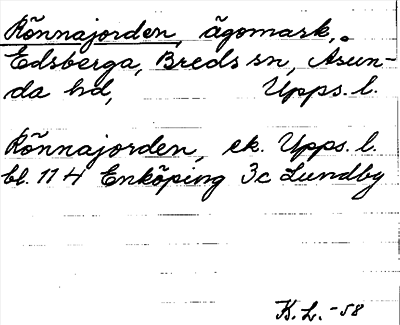 Rõnnajorden, ägomark,
Edsberga, Breds sn, Åsun-
da hd, Upps. l.
Rõnnajorden, ek. Upps. l.
bl. 114 Enköping 3c Lundby
K. L. -58